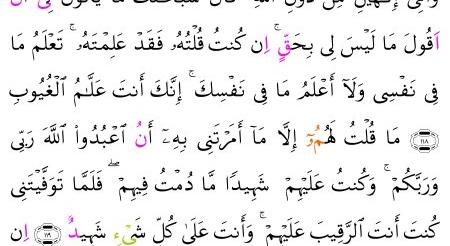 وَأُمِّىَ إِلَٰهَيْنِ مِن دُونِ ٱللَّهِ ۖ قَالَ سُبْحَٰنَكَ مَا يَكُونُ لِىٓ أَنْ
اَقُولَ مَا لَيْسَ لِى بِحَقٍّ ۚ إِن كُنتُ قُلْتُهُۥ فَقَدْ عَلِمْتَهُۥ ۚ تَعْلَمُ مَا
فِى نَفْسِى وَلَآ أَعْلَمُ مَا فِى نَفْسِكَ ۚ إِنَّكَ أَنتَ عَلَّٰمُ ٱلْغُيُوبِ
١١٨ مَا قُلْتُ لَهُمُۥٓ إِلَّا مَآ أَمَرْتَنِى بِهِۦٓ أَنُ ٱعْبُدُوا۟ ٱللَّهَ رَبِّى
وَرَبَّكُمْ ۚ وَكُنتُ عَلَيْهِمْ شَهِيدًا مَّا دُمْتُ فِيهِمْ ۖ فَلَمَّا تَوَفَّيْتَنِى
كُنتَ أَنتَ ٱلرَّقِيبَ عَلَيْهِمْ ۚ وَأَنتَ عَلَىٰ كُلِّ شَىْءٍ شَهِيدٌ ١١٩ إِن